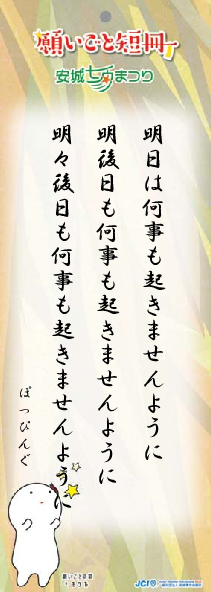 願いごと短冊
安城七夕まつり
明日は何事も起きませんように
明後日も何事も起きませんように
明々後日も何事も起きませんように
ぽっぴんぐ
JCI